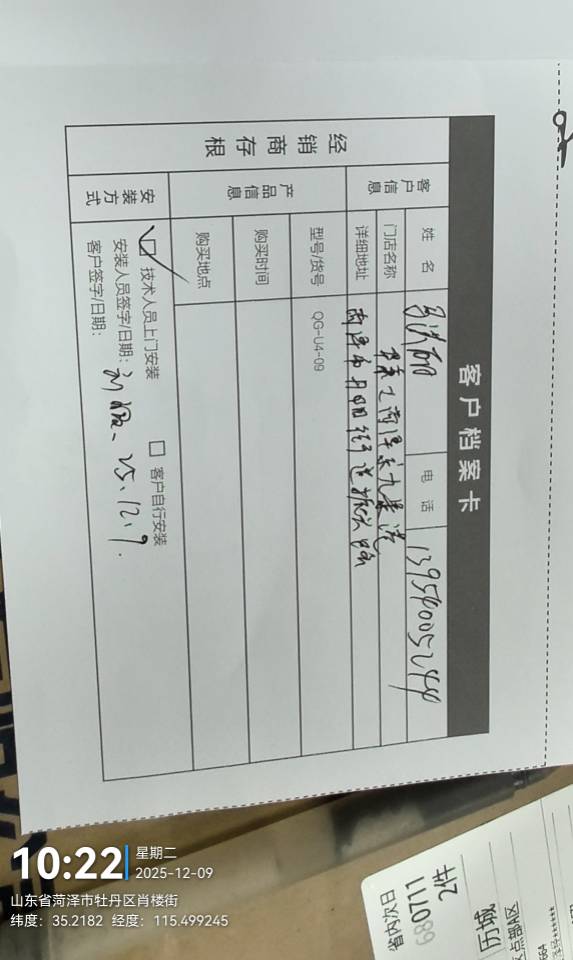 客户档案卡
经销商存根
客户信息
姓名
电话 13954005244
门店名称
详细地址
产品信息
型号/货号 QG-U4-09
购买时间
购买地点
安装方式
技术人员上门安装 客户自行安装
安装人员签字/日期: 25.12.9.
客户签字/日期:
省内次日
680711
2件
历城
10:22
星期二
2025-12-09
山东省菏泽市牡丹区肖楼街
纬度: 35.2182 经度: 115.499245